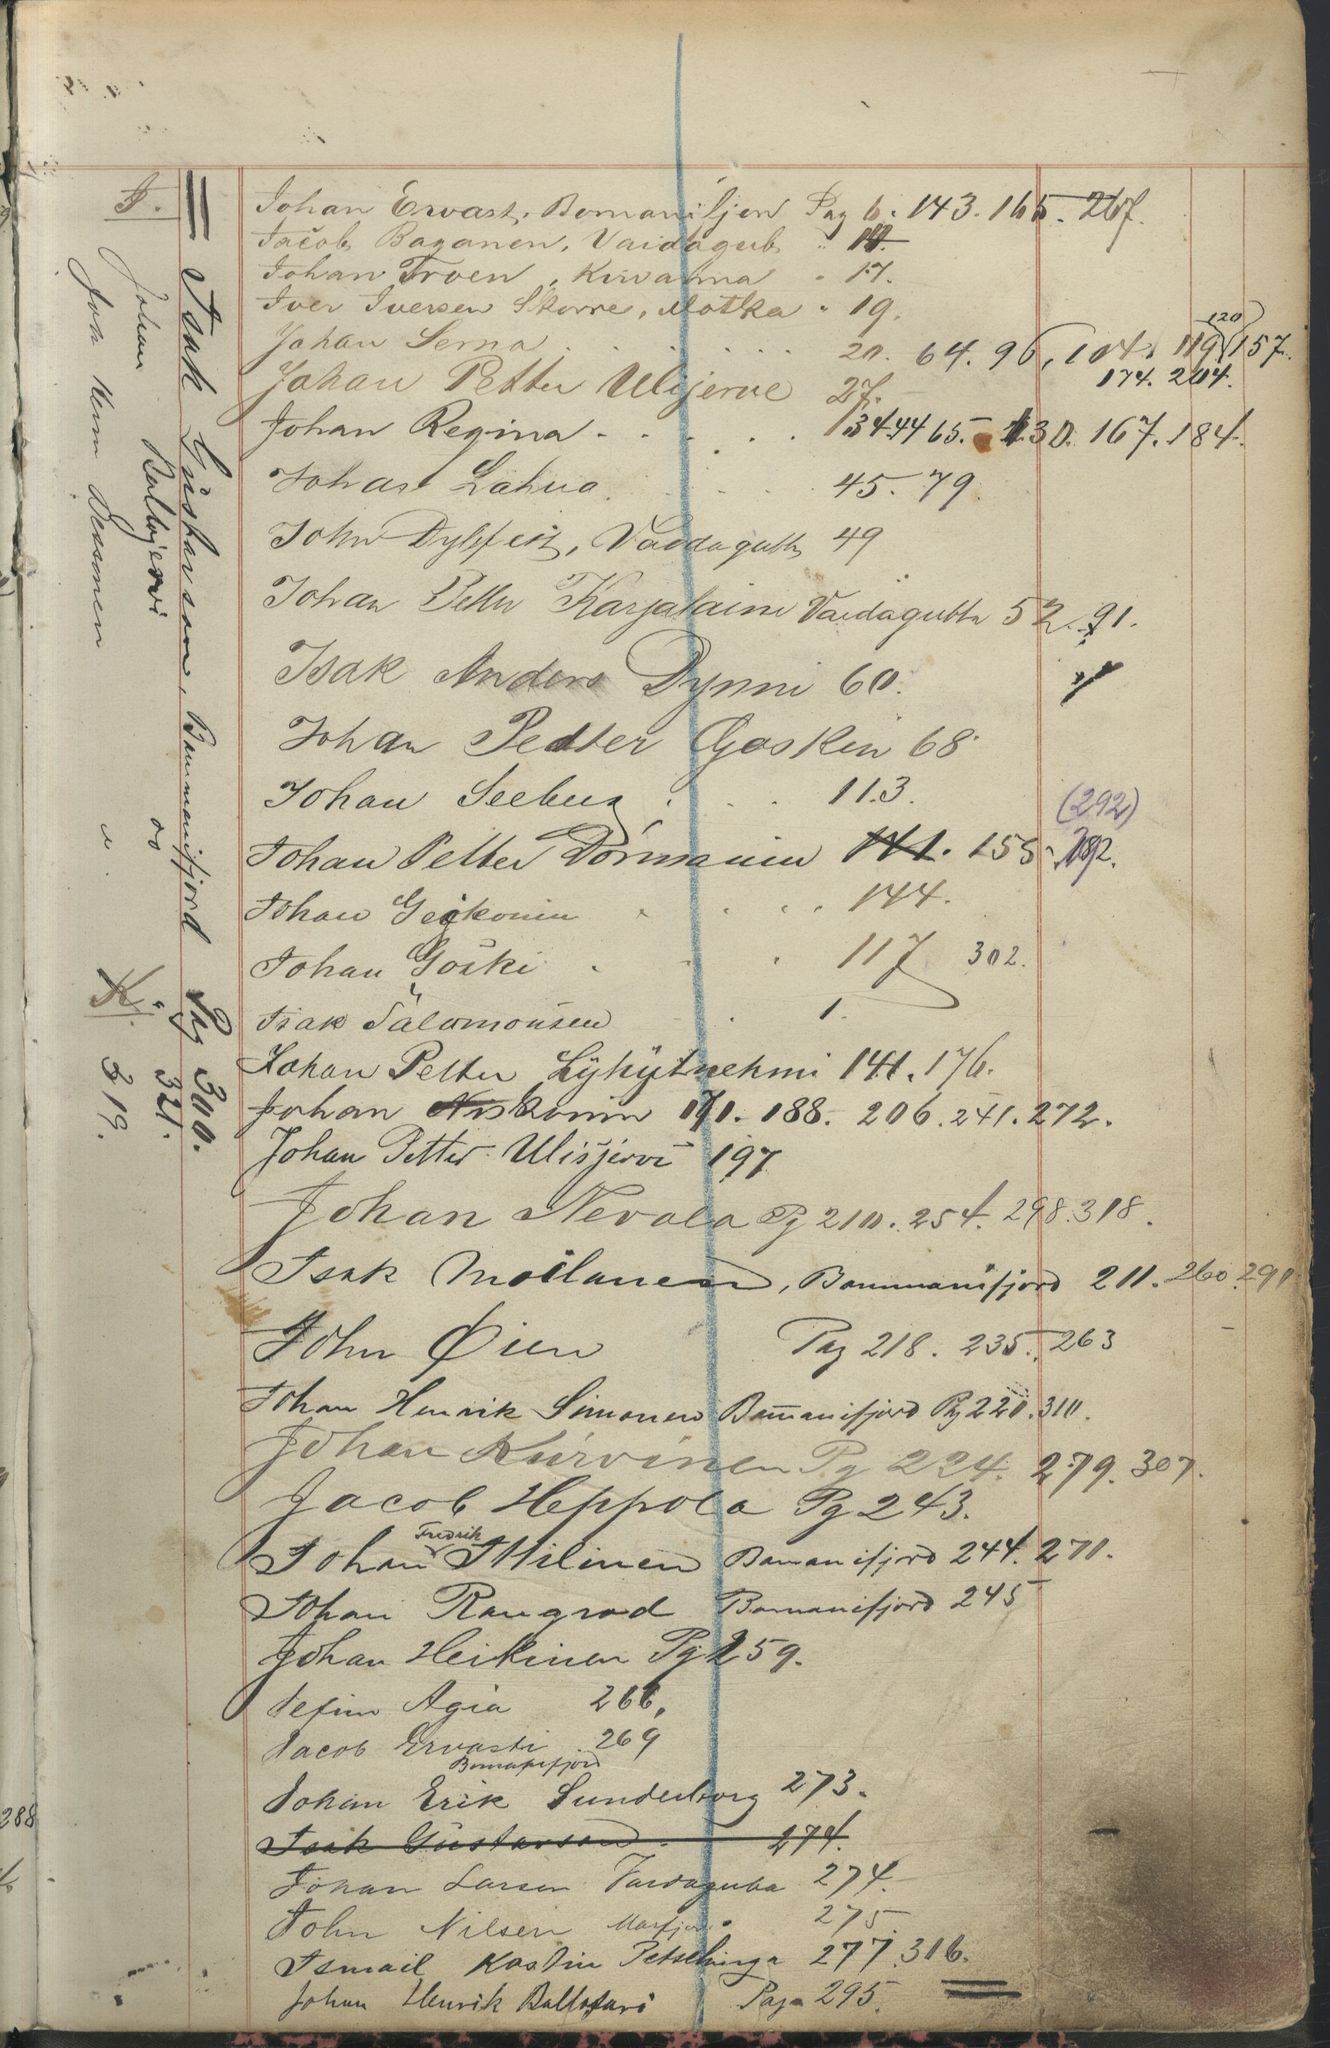 J.
Johan Ervast, Bomaniljen Pag 6. 143. 165. 267.
Jacob Bazanen, Vaidagub " 14.
Johan Troen, Kuvanna " 17.
Iver Iversen Skorre, Motka " 19.
Johan Serna 20. 64. 96, 104. 119 (120) 157.
174. 204.
Johan Petter Ulijerve 27.
Johan Regina 34. 44 65. 130. 167. 184.
Johan Lahua 45. 79.
John Dybfest, Vaidagubb 49
Johan Petter Karjalaine Vaidagubba 52. 91.
Isak Anders Dynni 60.
Johan Pedter Goskin 68
Johan Seeberg 113.
(292)
Johan Petter Dormanin 141. 155. 192.
Johan Geikonin 144.
Johan Goski 117 302.
Isak Salomonsen 1.
Johan Petter Lyhytnehmi 141. 176.
Johan Niskonin 171. 188. 206. 241. 272.
Johan Petter Ulisjervi 197
Johan Nevala Pg 210. 254. 298. 318.
Isak Moilanen, Bommanifjord 211. 260. 291
John Øien Pag 218. 235. 263
Johan Henrik Simonen Bomanifjord Pg 220. 310.
Johan Kurvinen Pg 224. 279. 307.
Jacob Heppola Pg 243.
Johan Fredrik Ittilinen Bomanifjord 244. 270.
Johan Rangrad Bomanifjord 245
Johan Heikinen Pg 259.
Jefim Agia 266.
Jacob Ervasti 269
Bomanifjord
Johan Erik Sunderborg 273.
Isak Gustavson 274.
Johan Larsen Vaidaguba 274.
John Nilsen 275
Ismail Kostin Petschinga 277. 316.
Johan Henrik Pag 295.
Isak Gustavson, Bummanifjord Pag 300.
Johan 321.
Joh 319.
K.
288